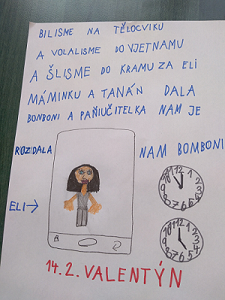 BILISME NA TĚLOCVIKU
A VOLALISME DO VJETNAMU
A ŠLISME DO KRAMU ZA ELI
MÁMINKU A TANÁN DALA
BONBONI A PAŇIUČITELKA NAM JE
ROZDALA NAM BOMBONI
ELI→
14.2. VALENTÝN